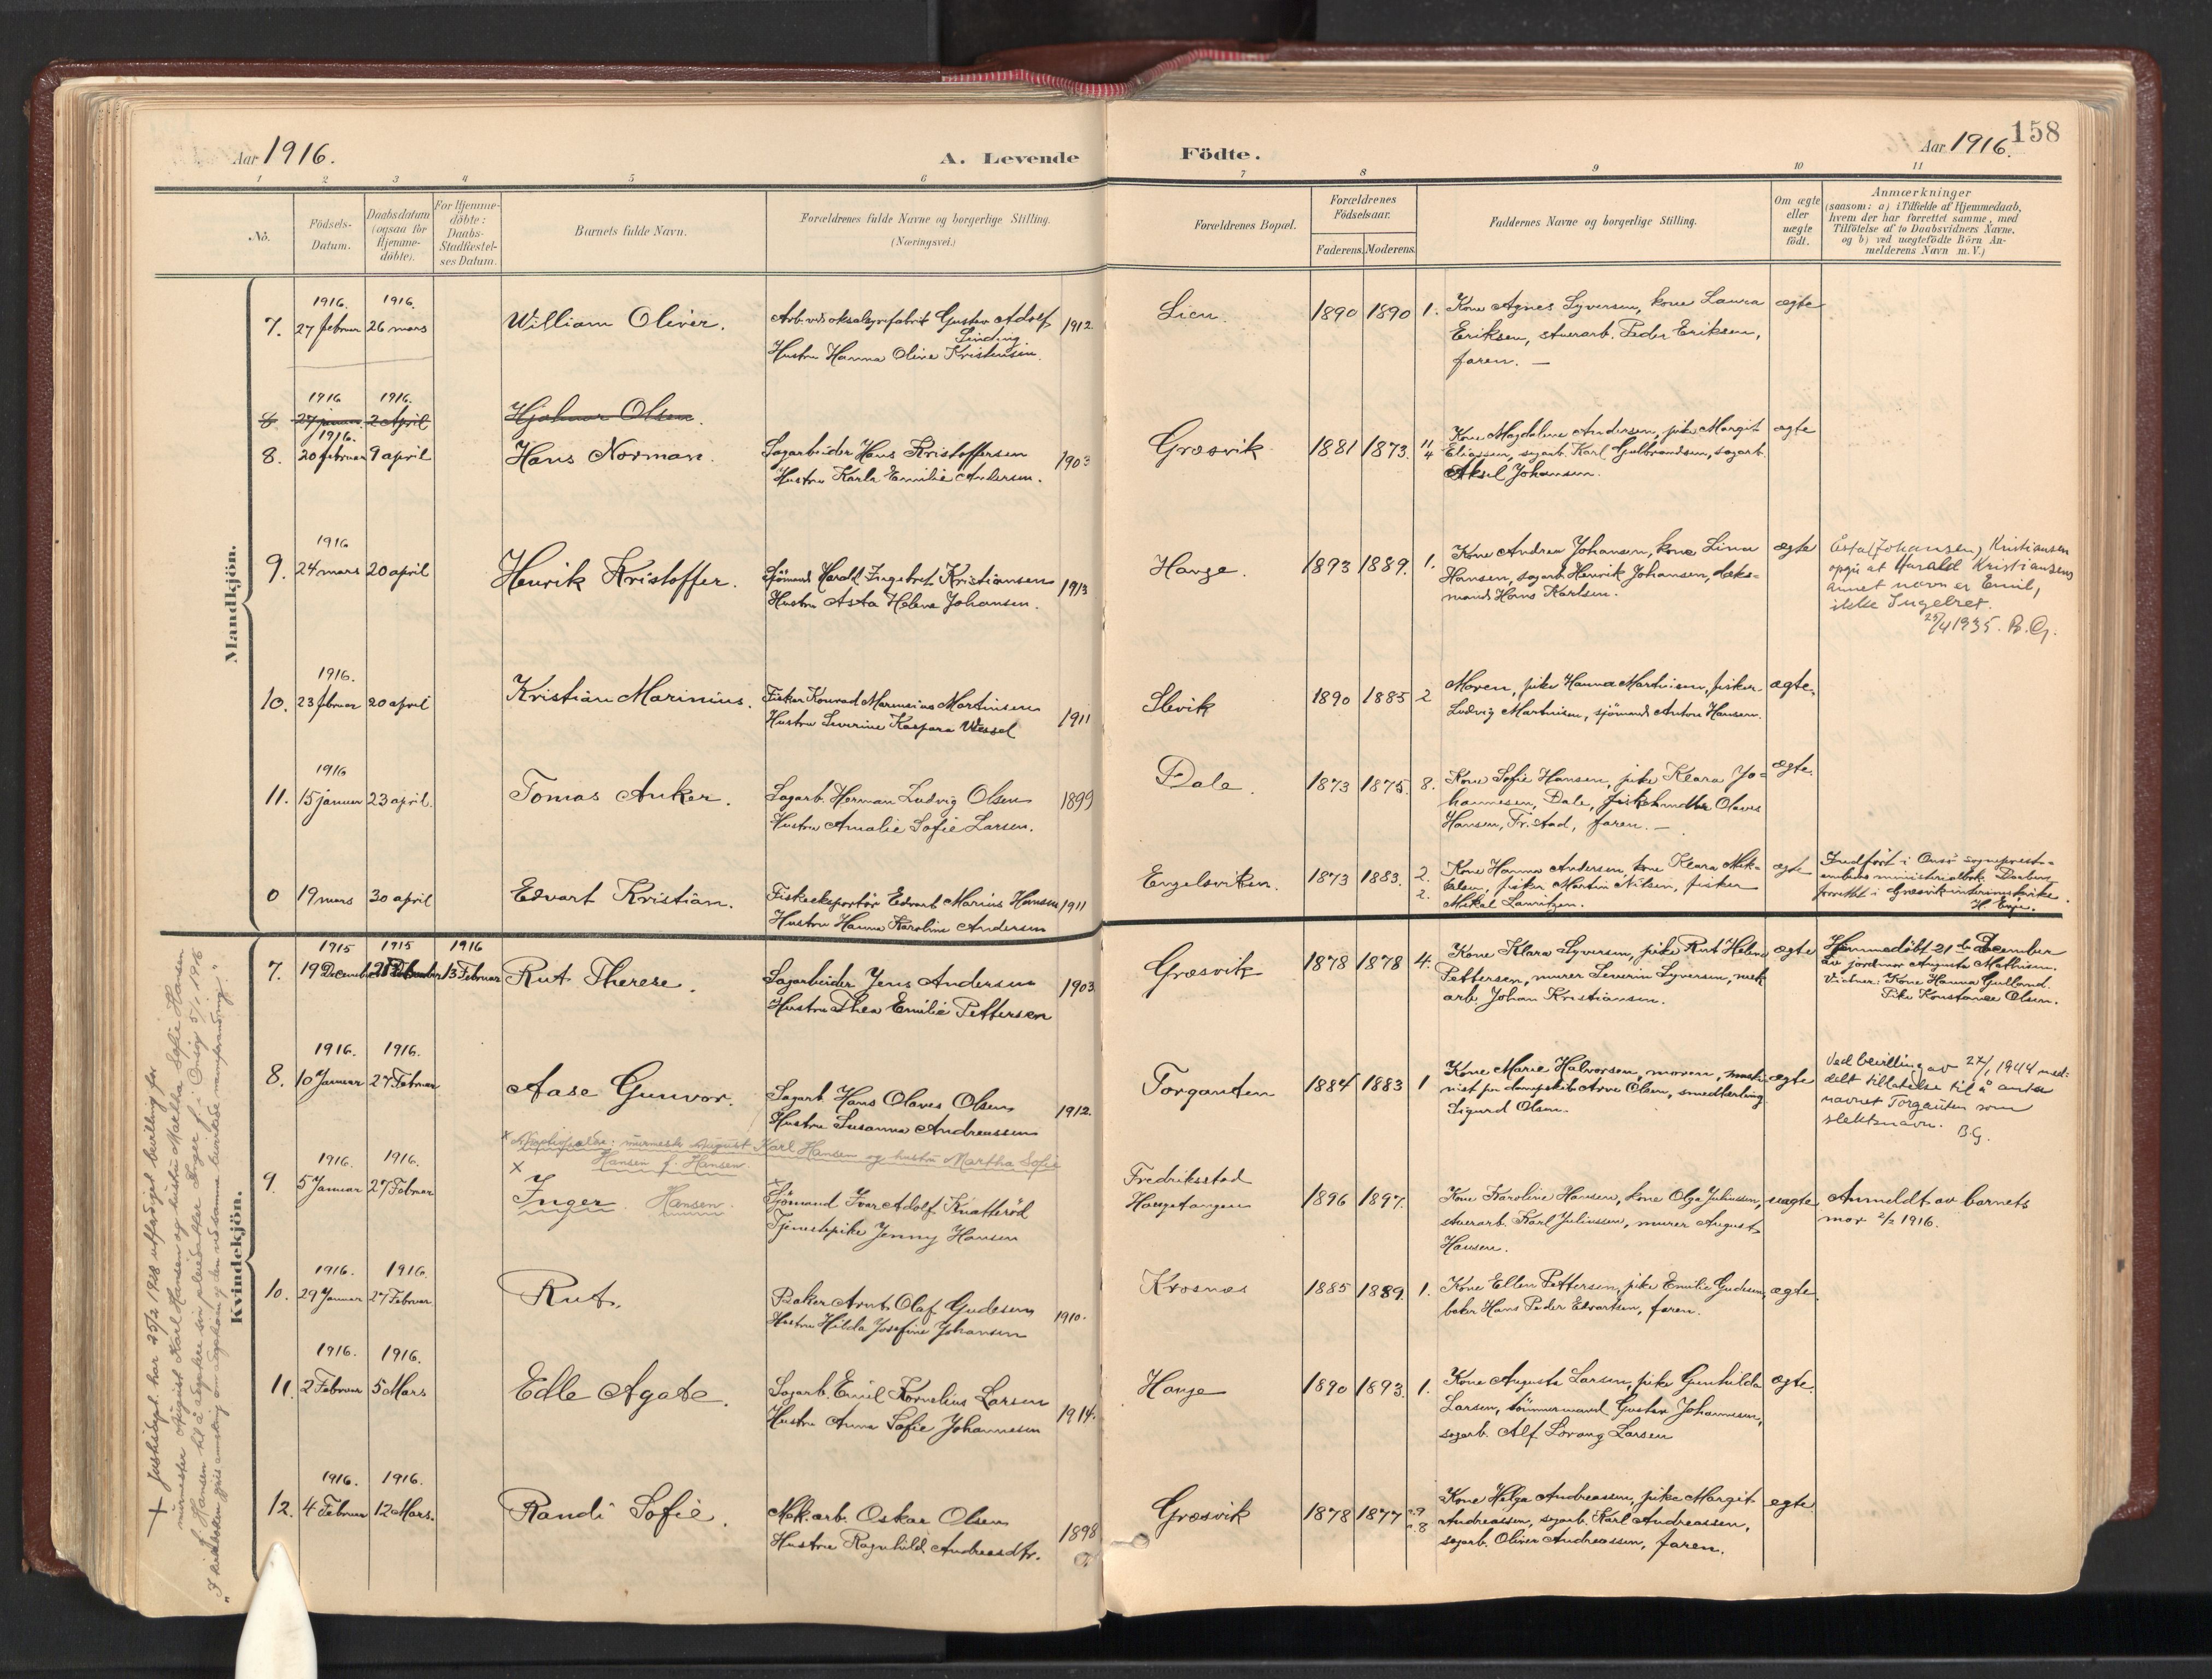 Aar 1916.
A. Levende
Födte.
Aar 1916.
158
1 2 3 4 5 6 7 8 9 10 11
No.
Födsels-Datum.
Daabsdatum (ogsaa for Hjemme-döbte).
For Hjemme-döbte: Daabs-Stadfæstel-ses Datum.
Barnets fulde Navn.
Forældrenes fulde Navne og borgerlige Stilling.
(Næringsvei.)
Forældrenes Bopæl.
Forældrenes Födselsaar.
Faderens. Moderens.
Faddernes Navne og borgerlige Stilling.
Om ægte eller uægte födt.
Anmærkninger
(saasom: a) i Tilfælde af Hjemmedaab,
hvem der har forrettet samme, med
Tilföielse af to Daabsvidners Navne.
og b) ved uægtefödte Börn An-
melderens Navn m. V.)
Mandkjön.
1916. 1916.
7. 27 februar 26 mars William Oliver. Arb. ved oksalsyrefabrik Gustav Adolf Linding 1912.
Hustru Hanna Oline Kristensen.
Lien. 1890 1890 1. Kone Agnes Syversen, kone Laura ægte
Eriksen, stuerarb. Peder Eriksen,
faren. —
1916 1916.
8 27 januar 2 April Hjalmar Olsen.
1916.
8. 20 februar 9 april Hans Norman. Sagarbeider Hans Kristoffersen 1903
Hustru Karla Emilie Andersen.
Græsvik 1881 1873. 11 4 Kone Magdalene Andersen, pike Margit ægte
Eliassen, sagarb. Karl Gulbrandsen, sagarb.
Aksel Johansen.
1916
9. 24 mars 20 april Henrik Kristoffer. Sjömand Harald Ingebret Kristiansen 1913
Hustru Asta Helene Johansen.
Hauge. 1893 1889. 1. Kone Andrea Johansen, kone Lina ægte
Hansen, sagarb. Henrik Johansen, dæks-
mand Hans Karlsen.
(Johansen) Kristiansen
opgir at Harald Kristiansens
annet navn er Emil,
ikke Ingebret.
29/4 1935. B.G.
1916.
10. 23 februar 20 april Kristian Marinius. Fisker Konrad Marensius Martinsen 1911
Hustru Severine Kaspara Wessel
Slevik 1890 1885 2 Moren, pike Hanna Martinsen, fisker ægte.
Ludvig Martinsen, sjömand Anton Hansen.
1916
11. 15 januar 23 april. Tomas Anker. Sagarb. Herman Ludvig Olsen 1899
Hustru Amalie Sofie Larsen.
Dale. 1873 1875. 8. Kone Sofie Hansen, pike Klara Jo- ægte.
hannesen, Dale, fiskehandler Olaves
Hansen, Fr.stad, faren. —
0 19 mars 30 april Edvart Kristian. Fiskeeksportör Edvart Marius Hansen 1911
Hustru Hanna Karoline Andersen
Engelsviken. 1873 1883. 2. 2. Kone Hanna Andersen, kone Klara Mik- ægte
kelsen, fisker Martin Nilsen, fisker
Mikal Lauritzen.
Indfört i Onsö sogneprest-
embeds ministerialbok. Daaben
forrettet i Græsvik interimskirke.
Kvindekjön.
1915 1915 1916
7. 19 December 21 December 13 Februar Rut Therese. Sagarbeider Jens Andersen 1903.
Hustru Thea Emilie Pettersen
Græsvik 1878 1878 4. Kone Klara Syversen, pike Rut Helene ægte
Pettersen, murer Severin Syversen, mek
arb. Johan Kristiansen.
Hjemmedöbt 21de December
av jordmor Augusta Mathisen.
Vidner: Kone Hanna Gulland.
Pike Konstance Olsen.
1916. 1916.
8. 10 Januar 27 Februar Aase Gunvor. Sagarb. Hans Olaves Olsen 1912.
Hustru Susanna Andreassen
Torgauten 1884 1883 1 Kone Marie Halvorsen, moren, maski- ægte
nist paa dampskib Arne Olsen, smedlærling
Sigurd Olsen.
Ved bevilling av 27/1 1944 med-
delt tillatelse til å anta
navnet Torgauten som
slektsnavn. B.G.
x Adoptivforeldre: murmester August Karl Hansen og hustru Martha Sofie
Hansen f. Hansen.
1916. 1916.
9. 5 Januar 27 Februar x Inger Hansen. Sjömand Ivar Adolf Knatteröd
Tjenestepike Jenny Hansen
Fredriksstad
Haugetangen 1896 1897. Kone Karoline Hansen, kone Olga Juliussen, uægte
stuerarb. Karl Juliussen, murer August
Hansen.
Anmeldt av barnets
mor 2/2 1916.
1916. 1916.
10. 29 Januar 27 Februar Rut. Baker Arnt Olaf Gudesen 1910.
Hustru Hilda Josefine Johansen
Krosnes 1885 1889. 1. Kone Ellen Pettersen, pike Emilie Gudesen, ægte.
baker Hans Peder Edvartsen, faren.
1916. 1916.
11. 2 Februar 5 Mars Edle Agate. Sagarb. Emil Kornelius Larsen 1914.
Hustru Anna Sofie Johannesen
Hauge 1890 1893. 1. Kone Augusta Larsen, pike Gunhilda ægte.
Larsen, tömmermand Gustav Johannesen,
sagarb. Alf Lorang Larsen
1916. 1916.
12. 4 Februar 12 Mars. Randi Sofie. Mek. arb. Oskar Olsen 1898
Hustru Ragnhild Andreasdtr.
Græsvik 1878 1877 9 8 Kone Helga Andreassen, pike Margit ægte
Andreassen, sagarb. Karl Andreassen,
sagarb. Oliver Andreassen, faren.
+ Justisdept. har 25/2 1928 utferdiget bevilling for
murmester August Karl Hansen og hustru Martha Sofie Hansen
f. Hansen til å adoptere sin pleiedatter Inger f. i Onsöy 5/1 1916
"I kirkeboken gjøres anmerkning om adoptionen og den ved samme bevirkede navneforandring."